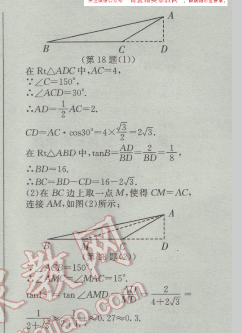 A
B C D
(第18题(1))
在Rt△ADC中,AC=4,
∵∠C=150°,
∴∠ACD=30°.
∴AD=1/2AC=2.
CD=AC·cos30°=4×√3/2=2√3.
在Rt△ABD中,tanB=AD/BD=2/BD=1/8,
∴BD=16.
∴BC=BD-CD=16-2√3.
(2)在BC边上取一点M,使得CM=AC,
连接AM,如图(2)所示;
A
B D
∵∠ACB=150°,
∴∠AMC=∠MAC=15°.
tan15°=tan∠AMD=AD/MD=2/(4+2√3)=
≈0.27≈0.3.